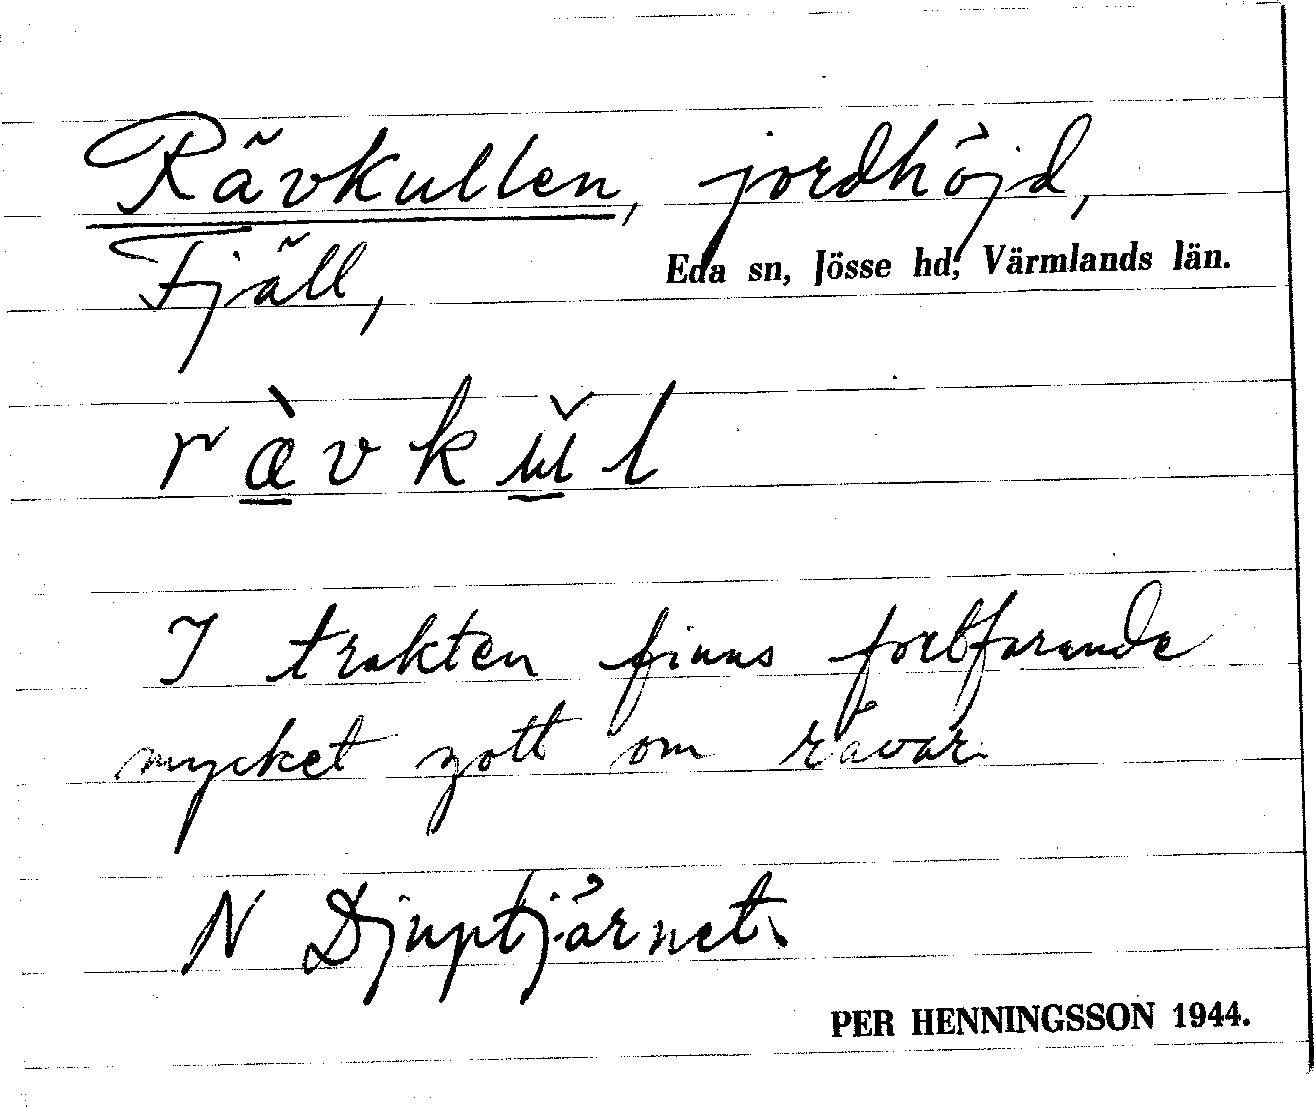 Rävkullen, jordhöjd,
Fjäll,
Eda sn, Jösse hd, Värmlands län.
ræ̀vkŭl
I trakten finns fortfarande
mycket gott om rävar.
N Djuptjärnet.
PER HENNINGSSON 1944.